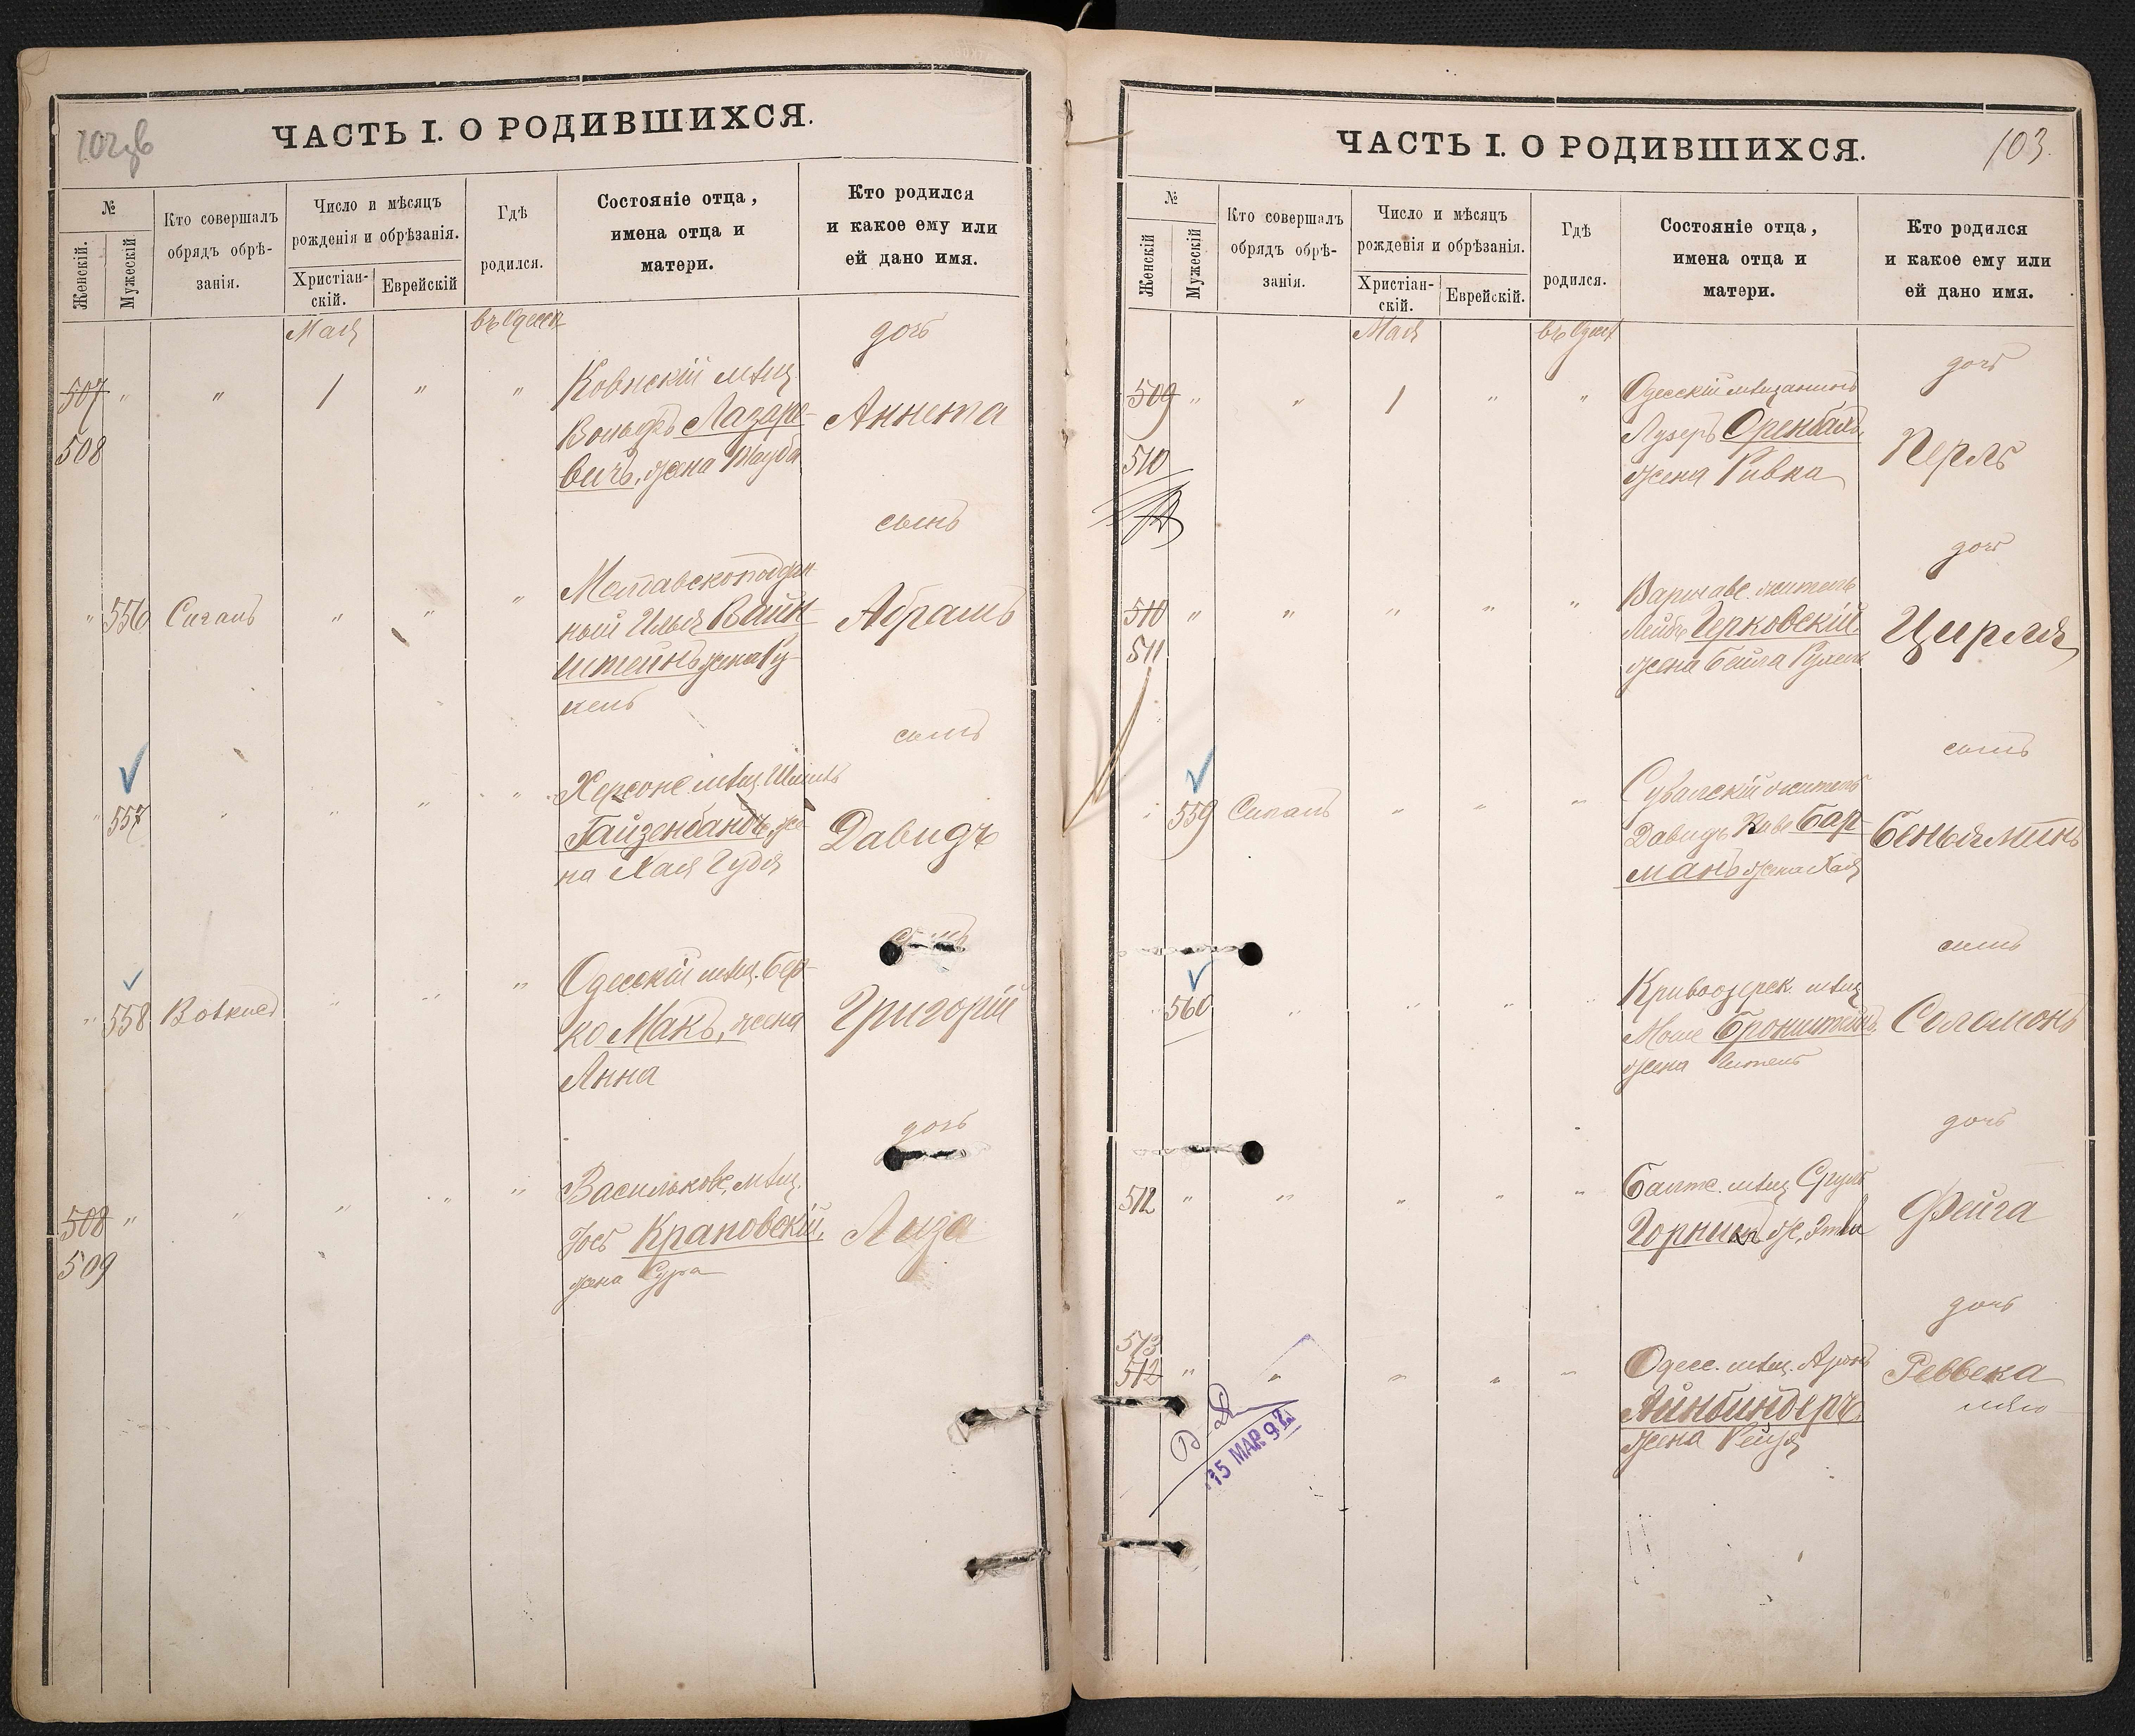 102об
ЧАСТЬ I. О РОДИВШИХСЯ.
№
Женскій.
Мужескій
Кто совершалъ
обрядъ обрѣ-
занія.
Число и мѣсяцъ
рожденія и обрѣзанія.
Христіан-
скій.
Еврейскій
Гдѣ
родился.
Состояніе отца,
имена отца и
матери.
Кто родился
и какое ему или
ей дано имя.
Мая
въ Одессѣ
дочь
507 " " 1 " "
508
Ковнскій мѣщ.
Вольфъ Лазаре-
вичъ, жена Тауба
Аннета
сынъ
" 556 Сигалъ " " "
ный Илья Вайн-
штейнъ жена Ру-
хель
Абрамъ
сынъ
" 557 " " " "
Херсонс. мѣщ.
Гайзенбандъ, же-
на Хая Гудя
Давидъ
сынъ
" 558 " " "
Одесскій мѣщ. Бер-
ко Макъ, жена
Анна
Григорій
дочь
508 " " " " "
509
Васильковс. мѣщ.
Іось Крановскій,
жена Сура
Лиза
103.
ЧАСТЬ I. О РОДИВШИХСЯ.
№
Женскій
Мужескій
Кто совершалъ
обрядъ обрѣ-
занія.
Число и мѣсяцъ
рожденія и обрѣзанія.
Христіан-
скій.
Еврейскій.
Гдѣ
родился.
Состояніе отца,
имена отца и
матери.
Кто родился
и какое ему или
ей дано имя.
Мая
въ Одессѣ
дочь
509 " " 1 " "
510
Одесскій мѣщанинъ
Лузеръ Оренбахъ,
жена Ривка
Перль
дочь
510 " " " " "
511
Варшавс. житель
Лейбъ Церковскій
жена Бейла
Цирля
сынъ
" 559 Сигалъ " " "
Сувалскій житель
Давидъ Бер-
манъ жена Хая
Беньяминъ
сынъ
560 " " " "
Кривоозерск. мѣщ
Моше Бронштейнъ
жена
Соломонъ
дочь
512 " " " " "
Балтс. мѣщ Сруль
Фейга
дочь
513
512 " " " " "
Одесс. мѣщ. Аронъ
Айнбиндеръ
жена Рейзя
Реввека
15 МАР. 92